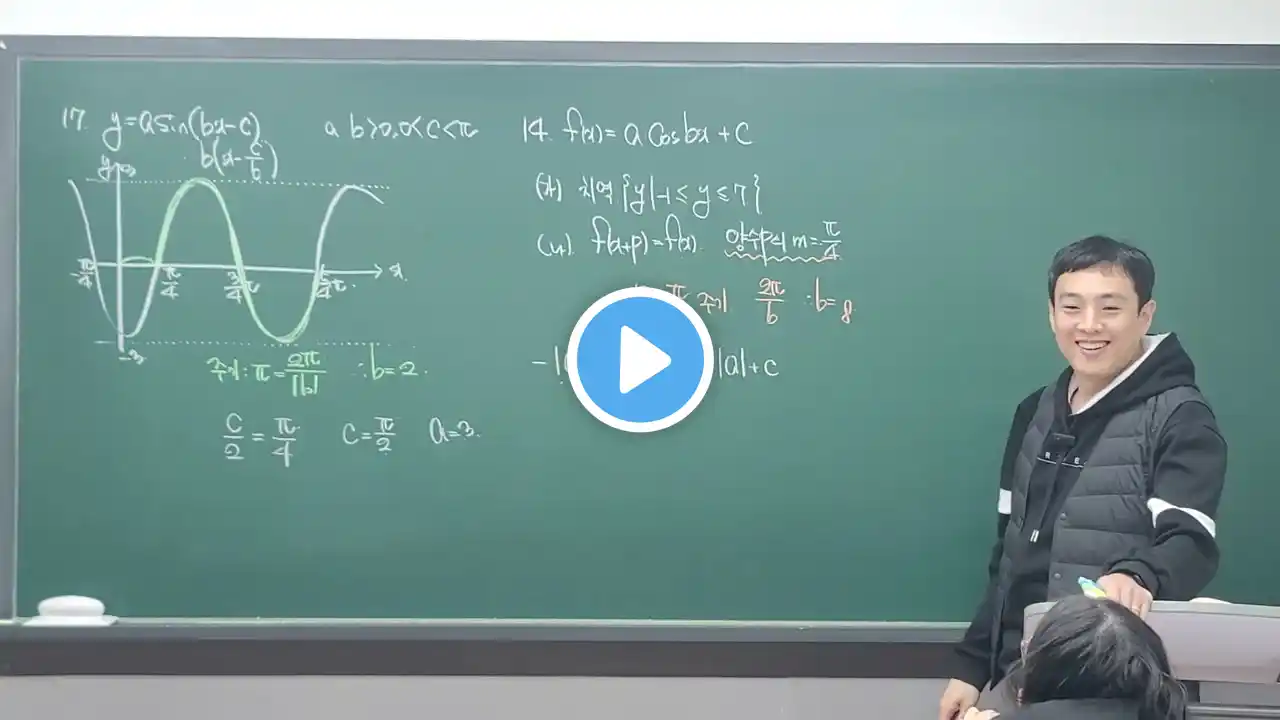 17. y=a sin(bx-c) a b>0, 0<c<π
b(x-c/b)
y 3
-π/4 π/4 3/4π 5/4π x
-3
주기:π=2π/|b| ∴b=2.
c/2=π/4 c=π/2 a=3.
14. f(x)=a cos bx+c
(가) 치역 {y|-1≤y≤7}
(나) f(x+p)=f(x). 양수p의 m=π/4
π 주기 2π/b ∴b=8
|a|+c